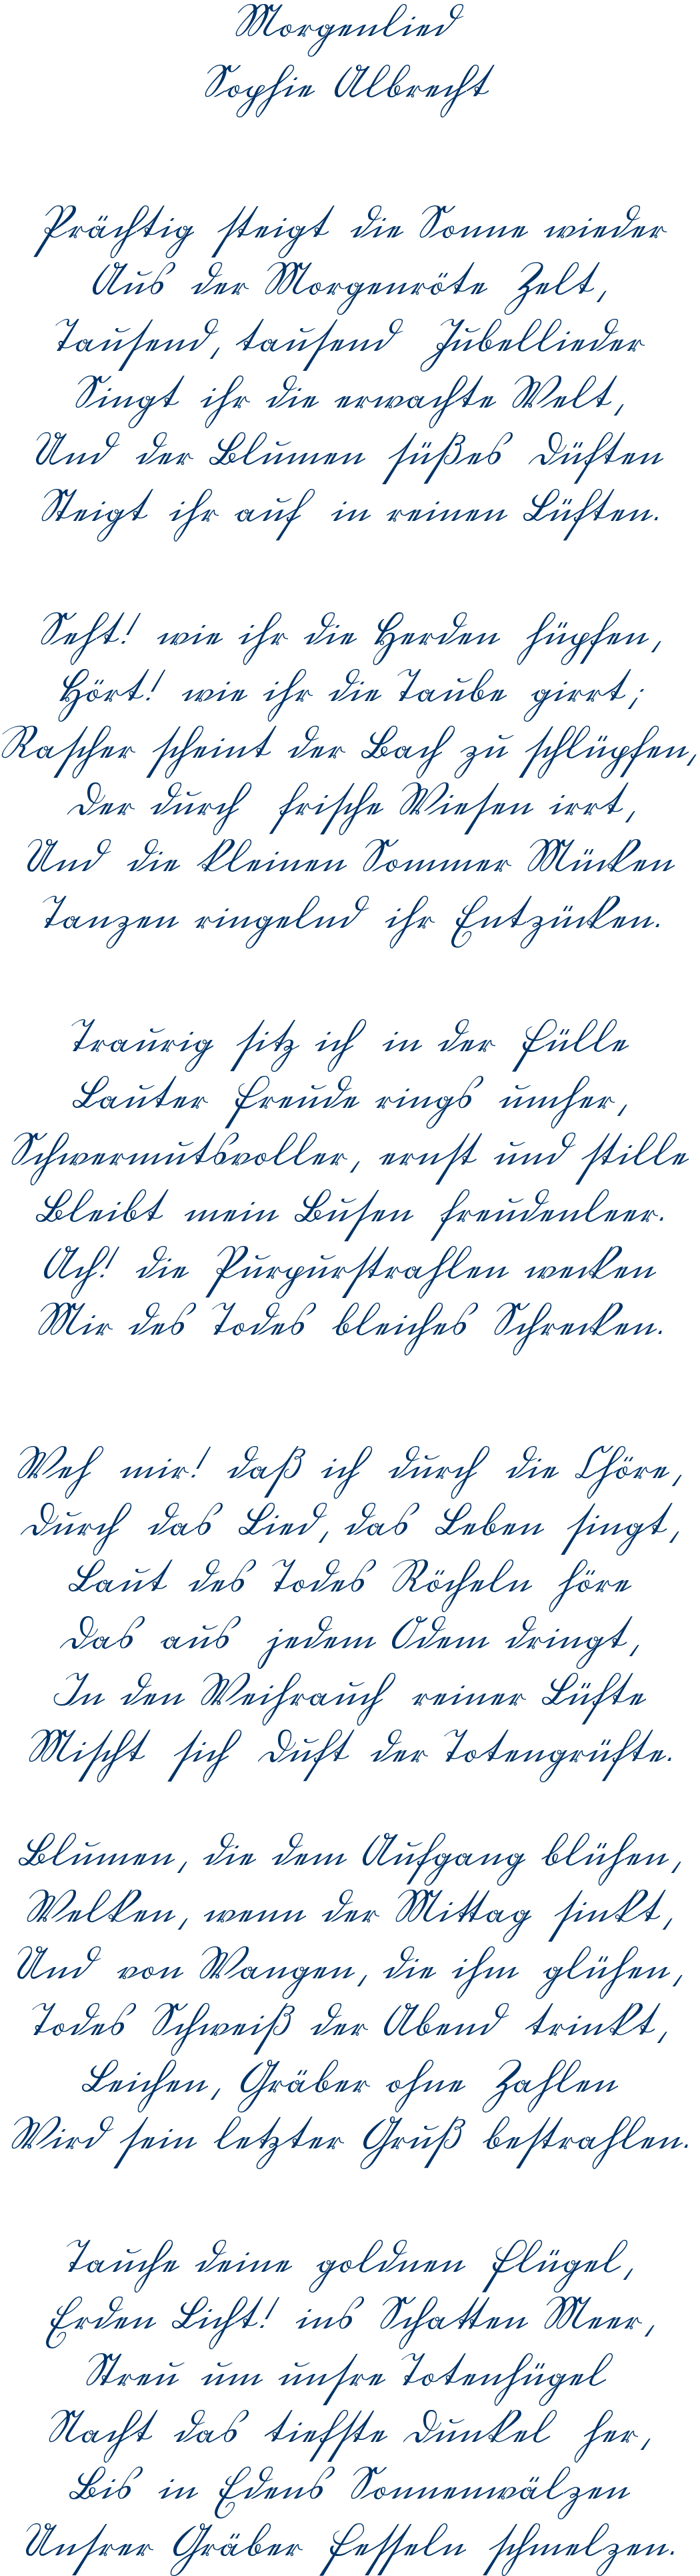 Morgenlied
Sophie Albrecht
Prächtig steigt die Sonne wieder
Aus der Morgenröte Zelt,
Tausend, tausend Jubellieder
Singt ihr die erwachte Welt,
Und der Blumen süßes Düften
Steigt ihr auf in reinen Lüften.
Seht! wie ihr die Herden hüpfen,
Hört! wie ihr die Taube girrt;
Rascher scheint der Bach zu schlüpfen,
Der durch frische Wiesen irrt,
Und die kleinen Sommer Mücken
Tanzen ringelnd ihr Entzücken.
Traurig sitz ich in der Fülle
Lauter Freude rings umher,
Schwermutsvoller, ernst und stille
Bleibt mein Busen freudenleer.
Ach! die Purpurstrahlen wecken
Mir des Todes bleiches Schrecken.
Weh mir! daß ich durch die Chöre,
Durch das Lied, das Leben singt,
Laut des Todes Röcheln höre
Das aus jedem Odem dringt,
In den Weihrauch reiner Lüfte
Mischt sich Duft der Totengrüfte.
Blumen, die dem Aufgang blühen,
Welken, wenn der Mittag sinkt,
Und von Wangen, die ihm glühen,
Todes Schweiß der Abend trinkt,
Leichen, Gräber ohne Zahlen
Wird sein letzter Gruß bestrahlen.
Tauche deine goldnen Flügel,
Erden Licht! ins Schatten Meer,
Streu um unsre Totenhügel
Nacht das tiefste Dunkel her,
Bis in Edens Sonnenwälzen
Unsrer Gräber Fesseln schmelzen.